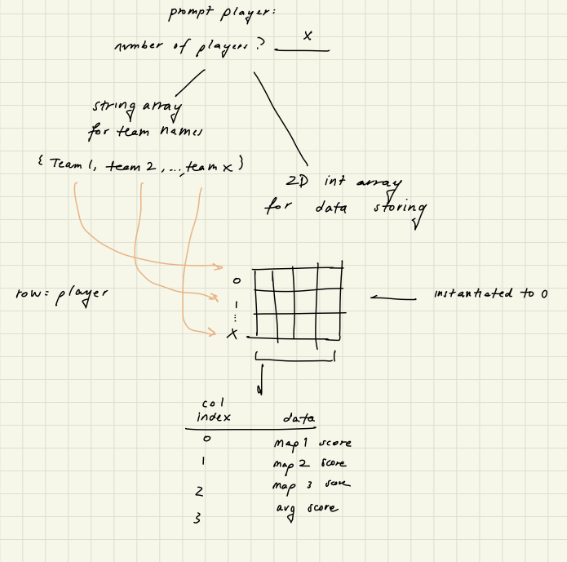 prompt player:
number of players? x
string array
for team names
{ Team 1, team 2, ..., team x }
2D int array
for data storing
row: player
0
1
:
X
instantiated to 0
col
index data
0 map 1 score
1 map 2 score
2 map 3 score
3 avg score